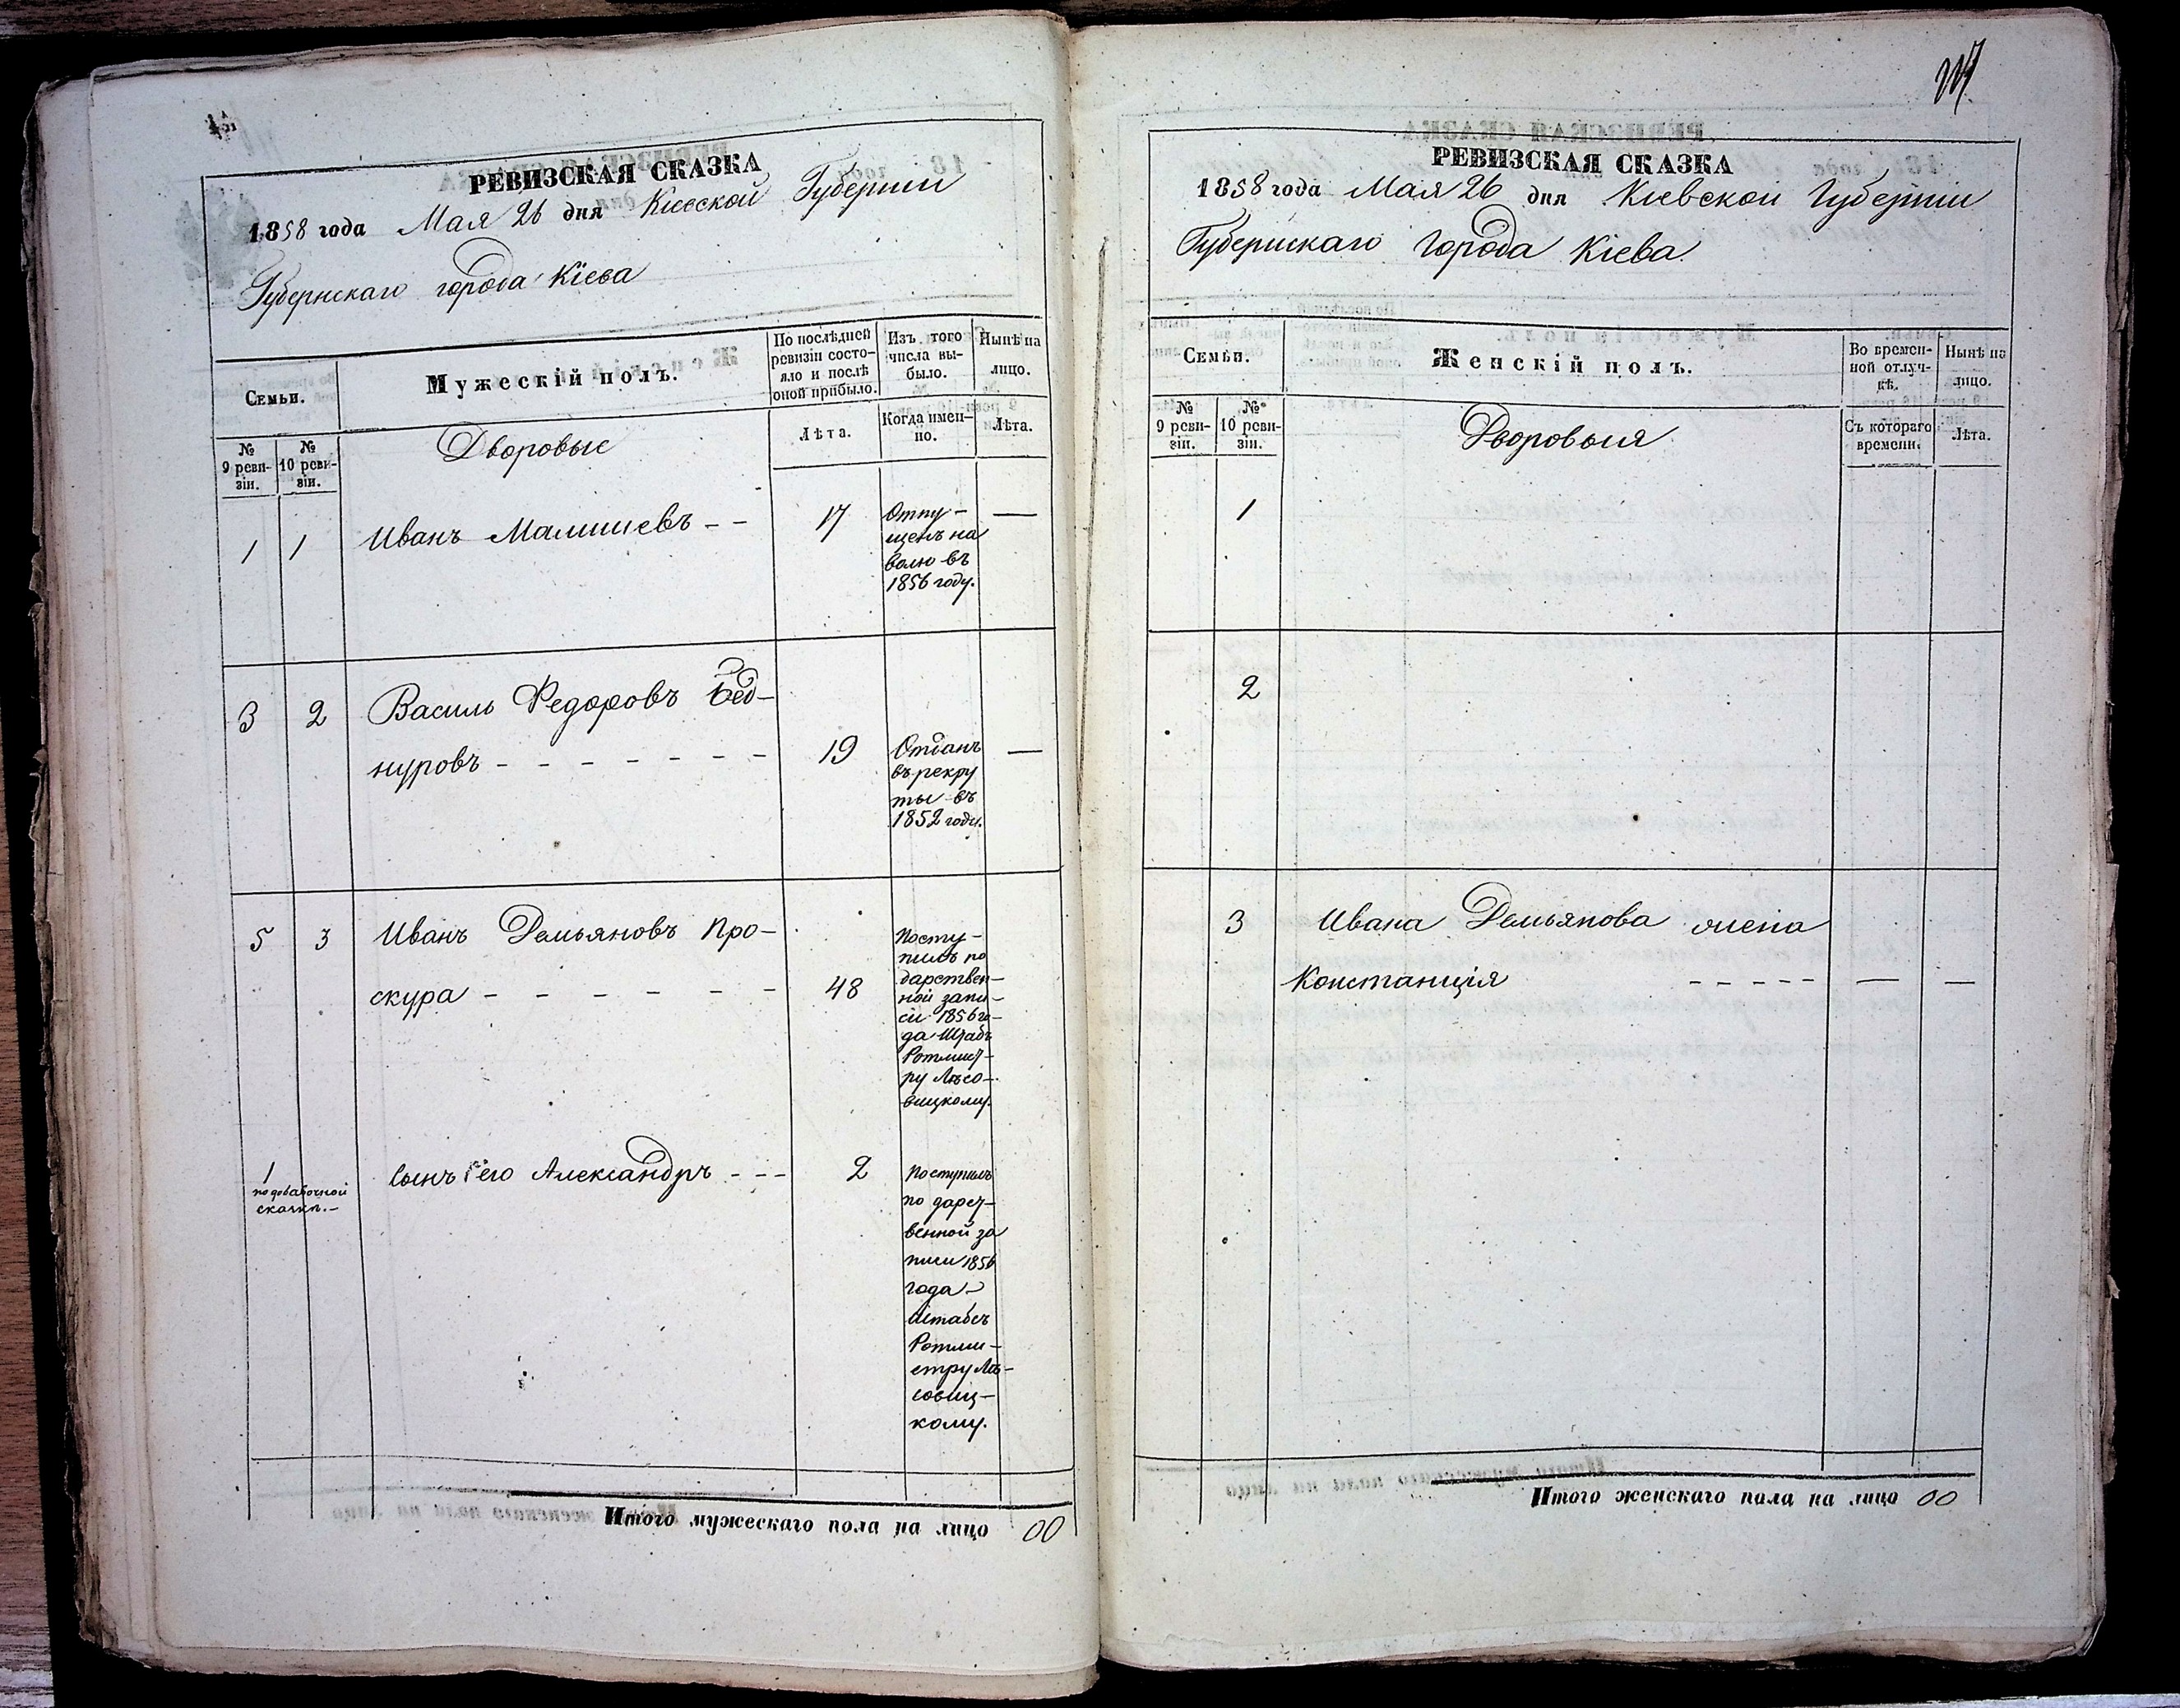 РЕВИЗСКАЯ СКАЗКА
1858 года Мая 26 дня Кіевской Губерніи
Губернскаго города Кіева
Семьи.
Мужескій полъ.
По послѣдней ревизіи состо-
яло и послѣ оной прибыло.
Изъ того числа вы-
было.
Нынѣ на лицо.
№ 9 реви-
зіи.
№ 10 реви-
зіи.
Лѣта.
Когда имен-
но.
Лѣта.
Дворовые
1 1 Иванъ Малишевъ - - 17
Отпу-
щенъ на
волю въ
1856 году.
—
3 2 Василь Федоровъ Бед-
нуровъ - - - - - - - 19
Отданъ
въ рекру
ты въ
1852 году.
—
5 3 Иванъ Демьяновъ Про-
скура - - - - - - 48
Посту-
пилъ по
дарствен-
ной запи-
си 1856 го-
да Штабъ
Ротмист-
ру Лѣсо-
вицкому.
1
по добавочной
сказки.-
Сынъ его Александръ - - - 2
Поступилъ
по дарст-
венной за
писи 1856
года
Штабсъ
Ротми-
стру Лѣ-
совиц-
кому.
Итого мужескаго пола на лицо 00
РЕВИЗСКАЯ СКАЗКА
1858 года Мая 26 дня Кіевской Губерніи
Губернскаго Города Кіева
Семьи.
Женскій полъ.
Во времен-
ной отлуч-
кѣ.
Нынѣ на
лицо.
№ 9 реви-
зіи.
№ 10 реви-
зіи.
Съ котораго
времени.
Лѣта.
Дворовыя
1
2
3 Ивана Демьянова жена
Констанція - - - - - — —
Итого женскаго пола на лицо 00